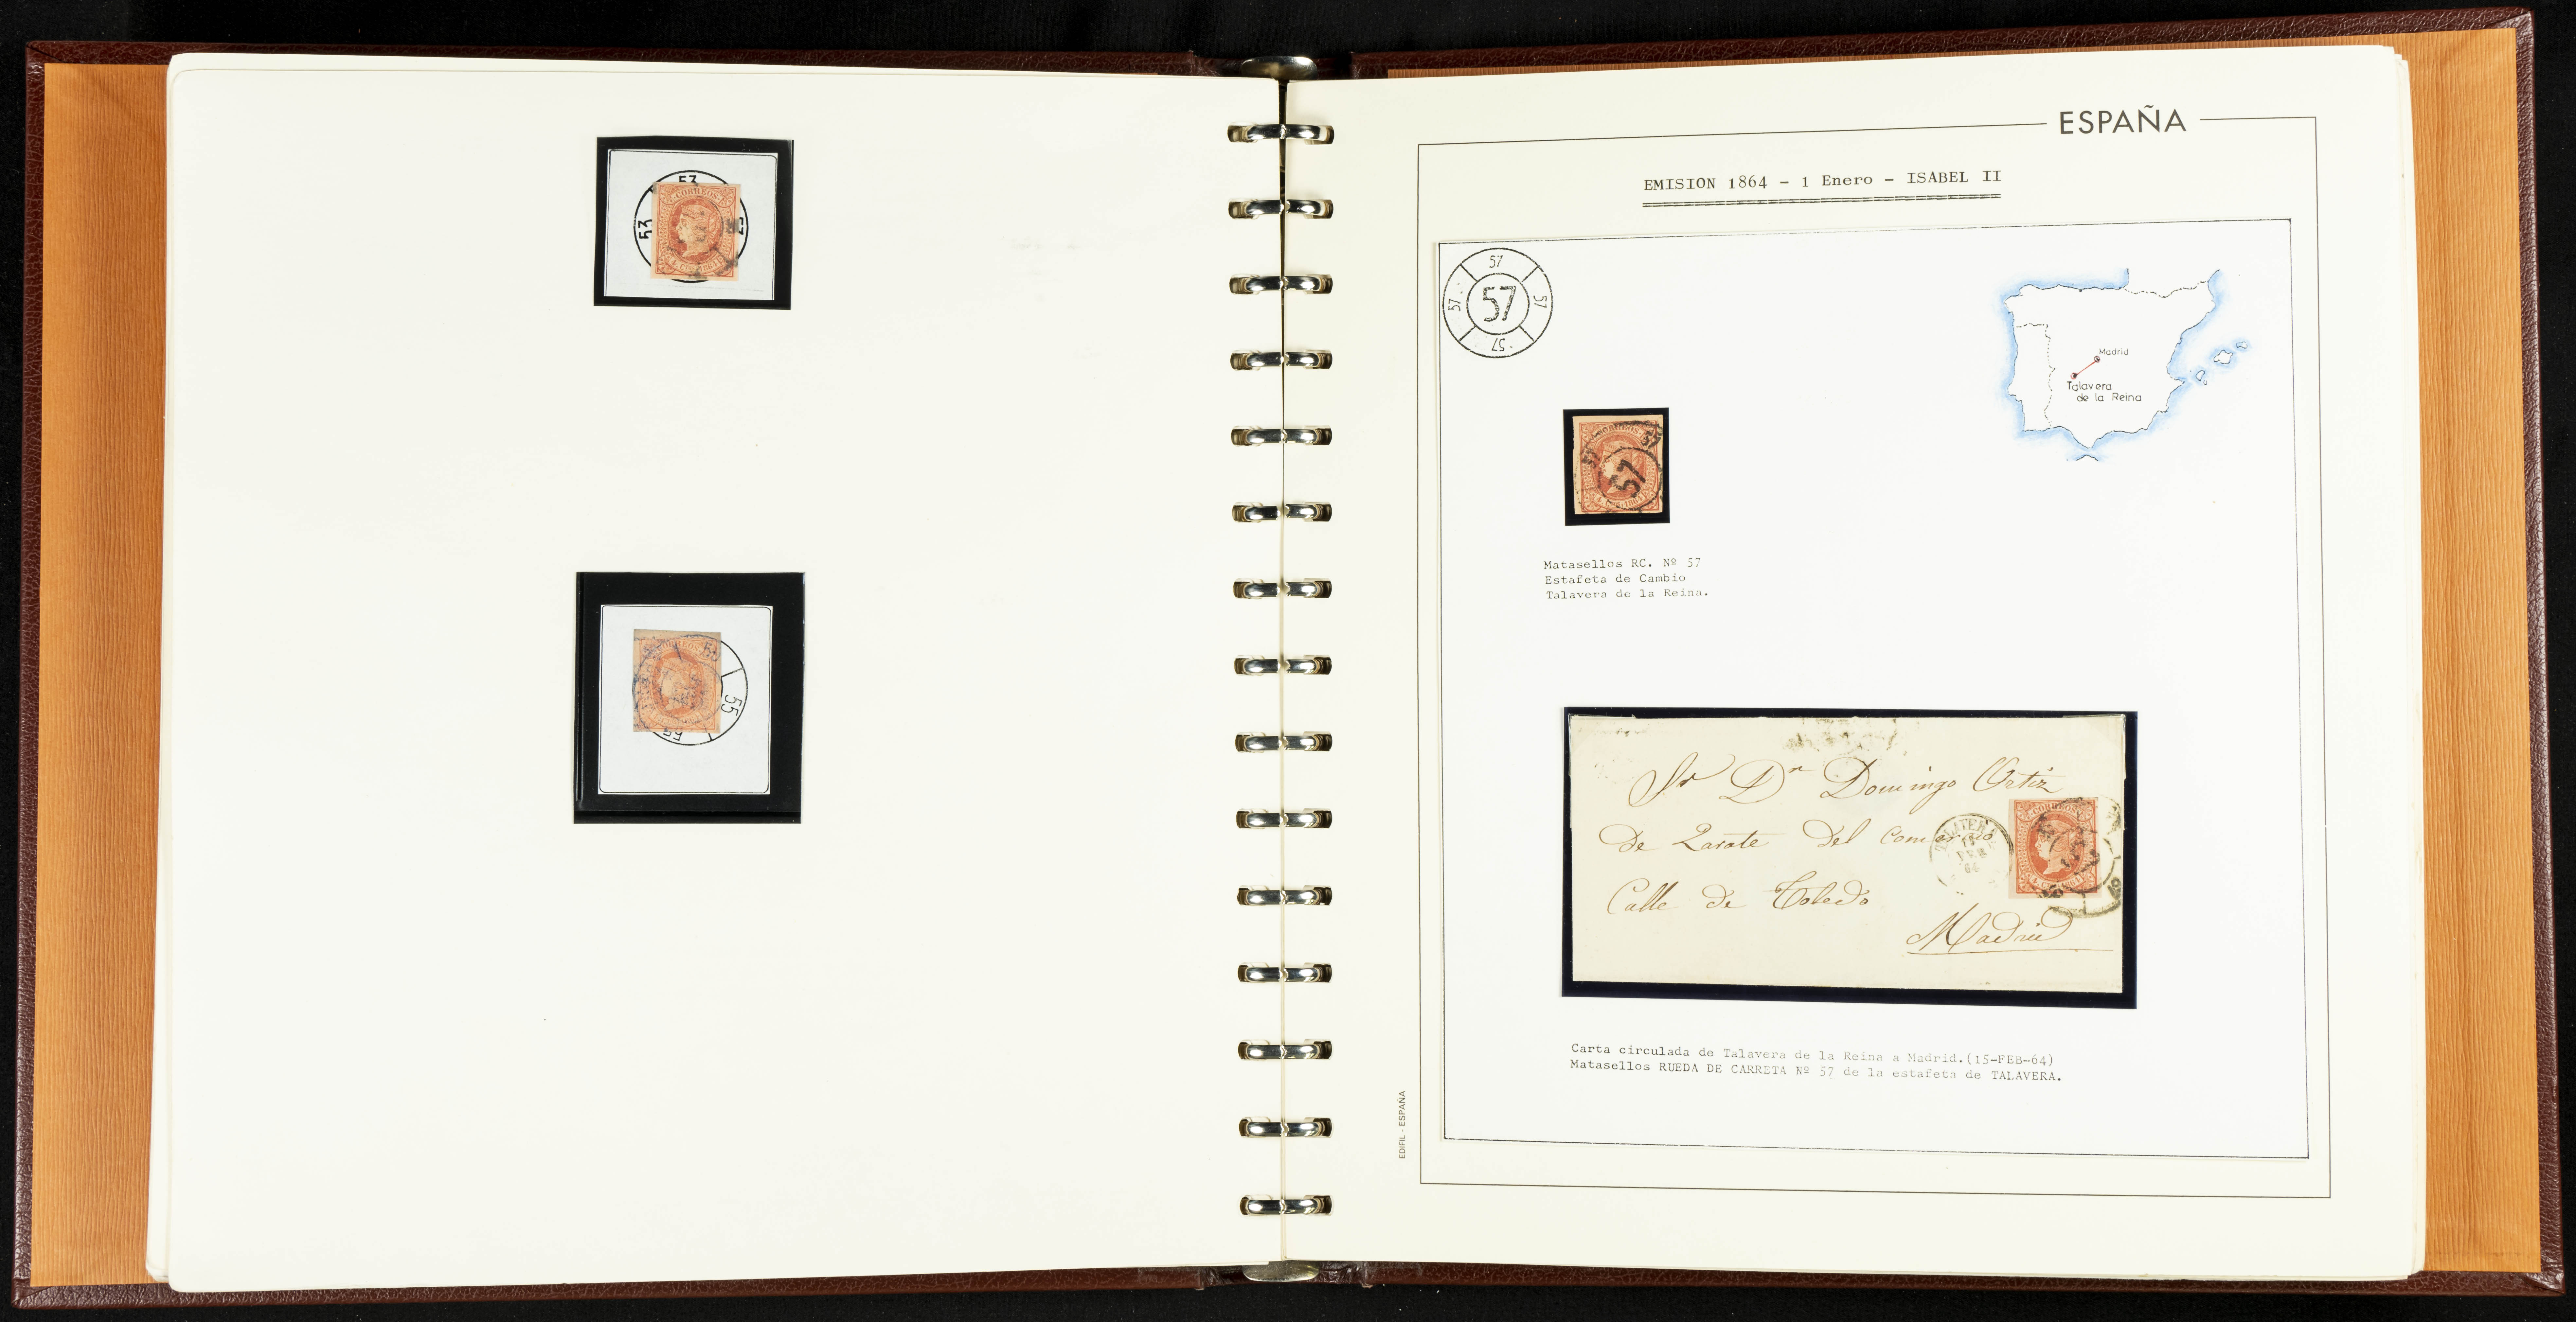 53
53
CORREOS
55
55
55
ESPAÑA
EMISION 1864 - 1 Enero - ISABEL II
57
57
57
57
57
Madrid
Talavera
de la Reina
CORREOS
57
57
Matasellos RC. Nº 57
Estafeta de Cambio
Talavera de la Reina.
Sr Dn Domingo Ortiz
de Zarate del comercio
Calle de Toledo
Madrid
15
FEB
64
CORREOS
Carta circulada de Talavera de la Reina a Madrid.(15-FEB-64)
Matasellos RUEDA DE CARRETA Nº 57 de la estafeta de TALAVERA.
EDIFIL - ESPAÑA